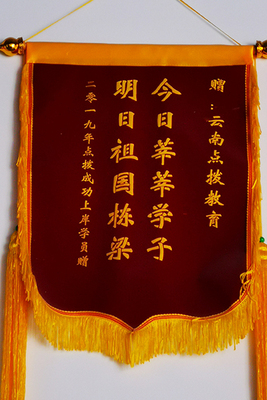 赠：云南点拨教育
今日莘莘学子
明日祖国栋梁
二零一九年点拨成功上岸学员赠